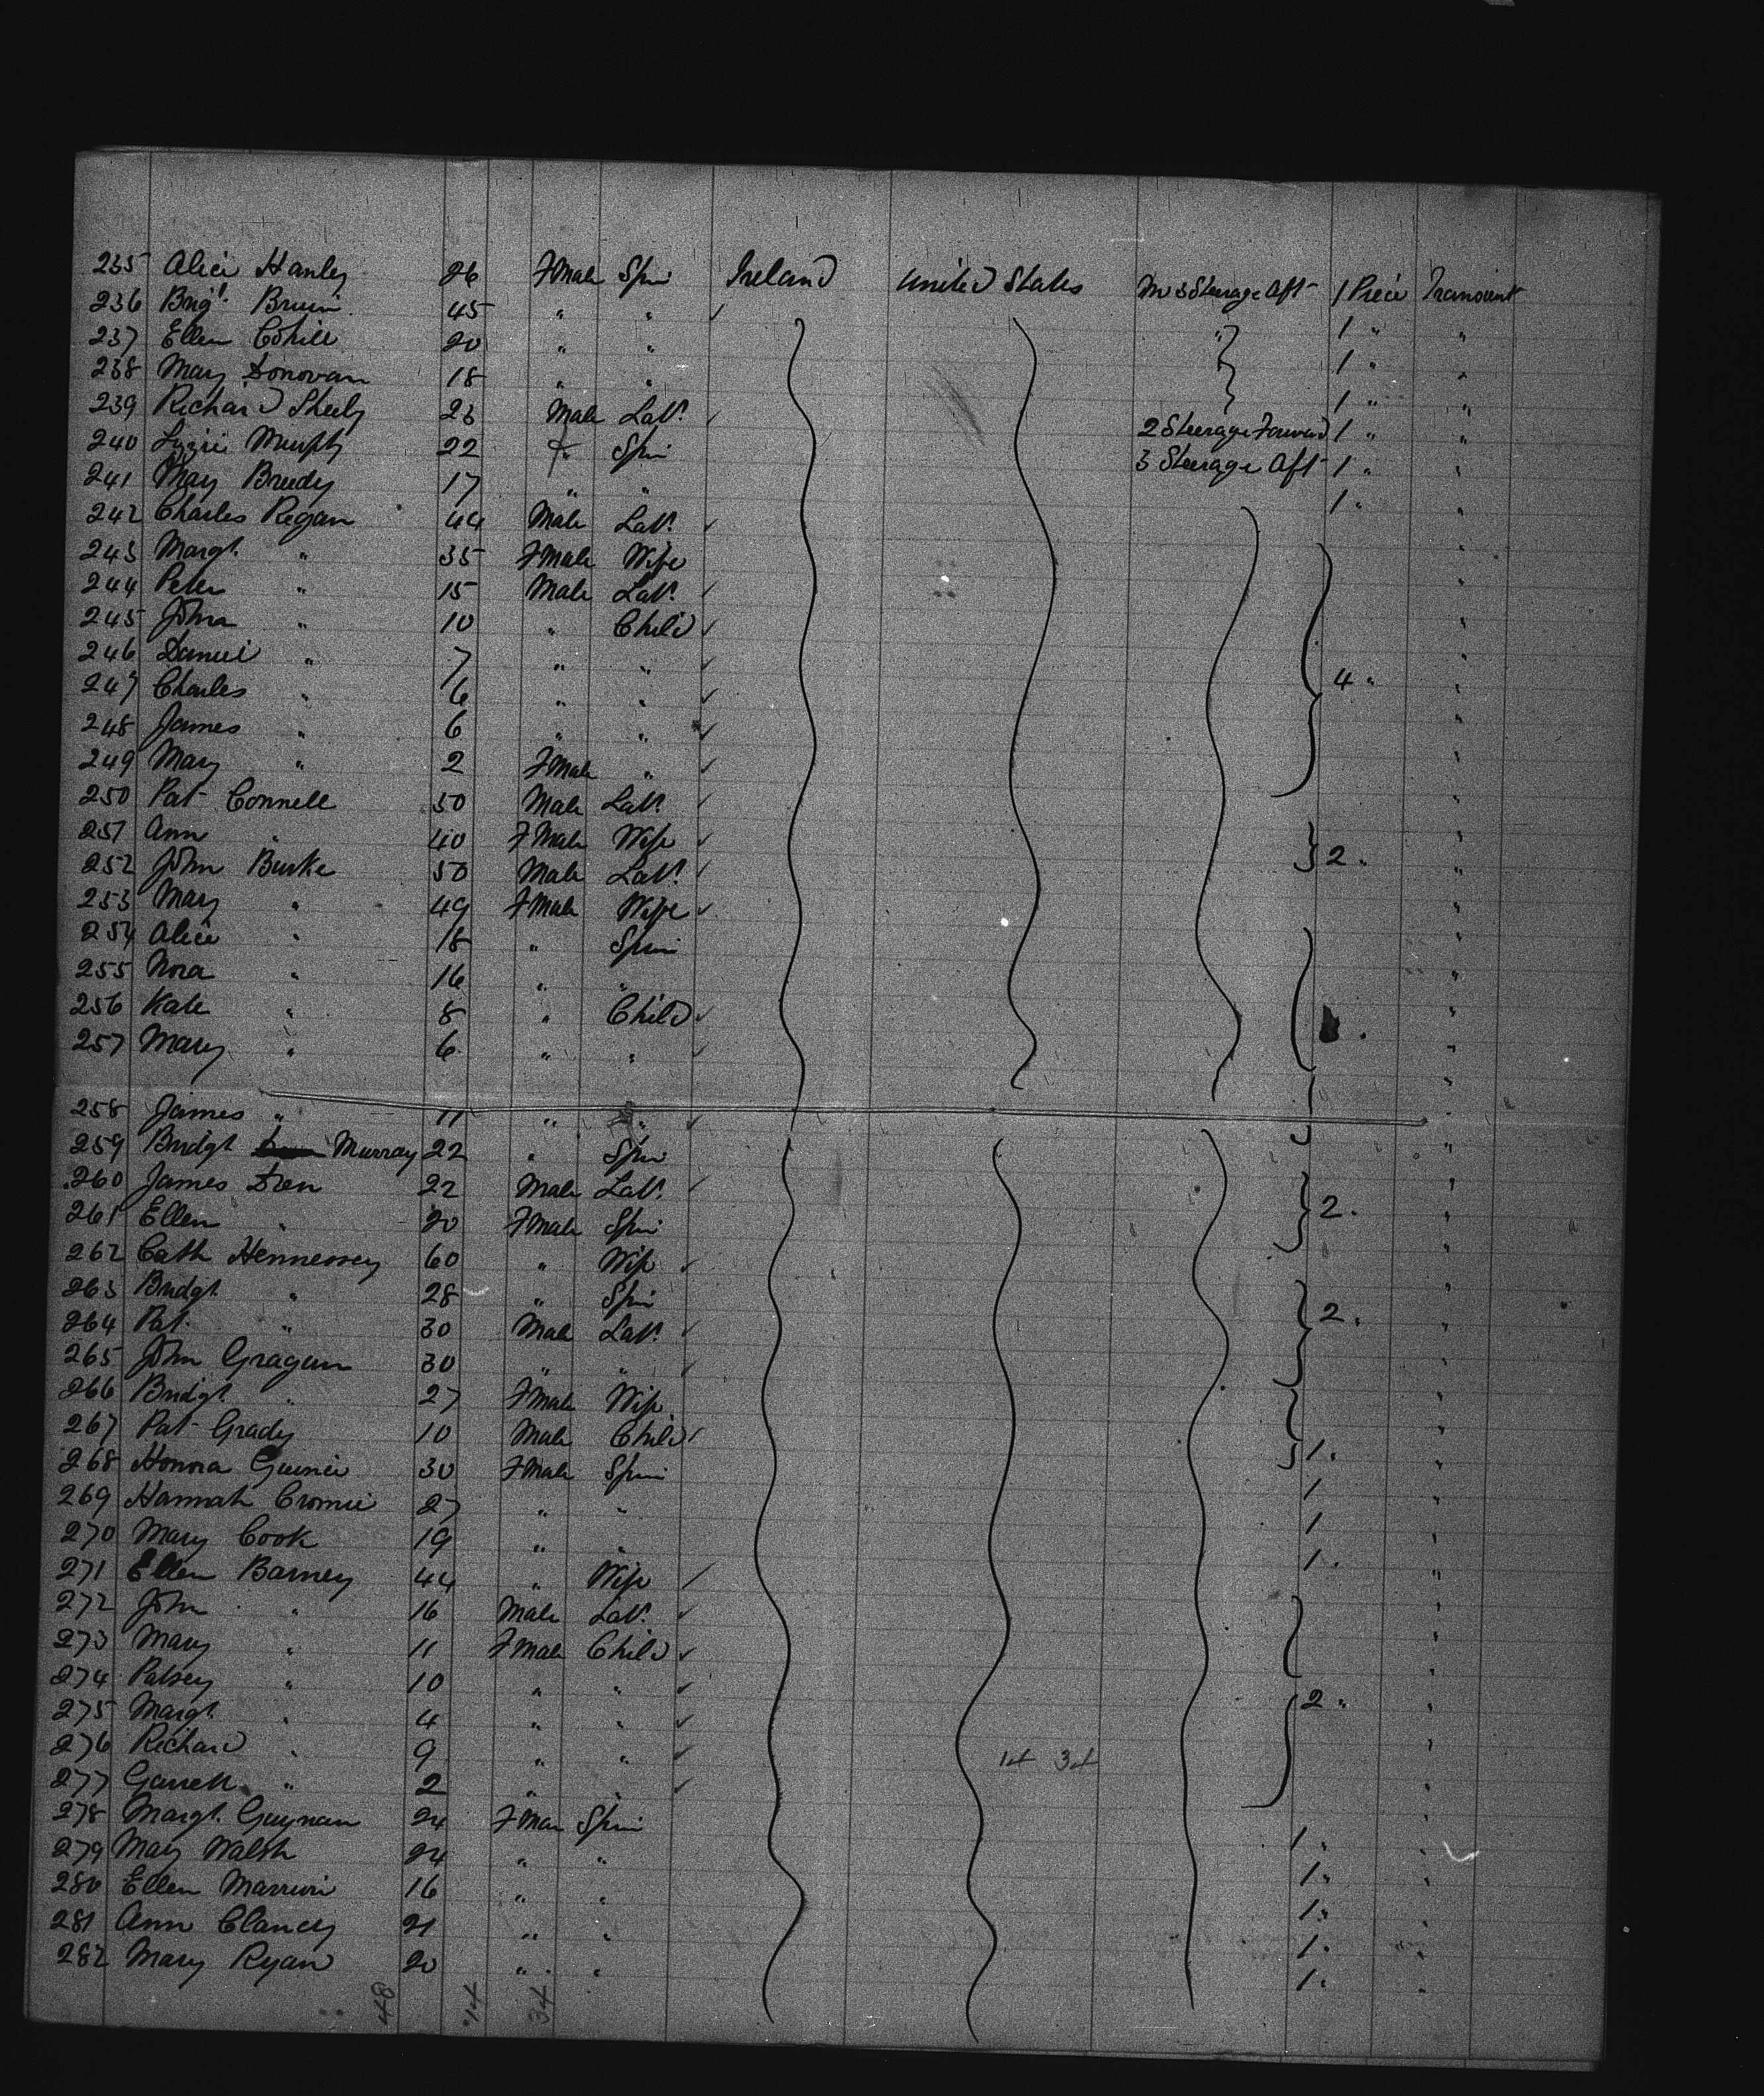 235 Alice Hanley 26 Fmale Spin Ireland United States No 3 Steerage Aft 1 Piece Transient
236 Brigt. Bruin 45 " " 1 " "
237 Ellen Cohill 20 " " 1 " "
238 Mary Donovan 18 " " 1 " "
239 Richard Sheely 23 Male Labr. 2 Steerage Forward 1 " "
240 Lizzie Murphy 22 F" Spin 3 Steerage Aft 1 " "
241 Mary Breedy 17 " " 1 " "
242 Charles Regan 44 Male Labr. "
243 Margt. " 35 Fmale Wife "
244 Peter " 15 Male Labr. "
245 John " 10 " Child "
246 Daniel " 7 " " "
247 Charles " 6 " " 4 " "
248 James " 6 " " "
249 Mary " 2 Fmale " "
250 Pat Connell 50 Male Labr. "
251 Ann " 40 Fmale Wife "
252 John Burke 50 Male Labr. 2 " "
253 Mary " 49 Fmale Wife "
254 Alice " 18 " Spin "
255 Nora " 16 " " "
256 Kate " 8 " Child "
257 Mary " 6 " " "
258 James " 11 " " "
259 Bridgt Murray 22 " Spin "
260 James Dren 22 Male Labr. "
261 Ellen " 20 Fmale Spin 2 " "
262 Cath Hennessey 60 " Wife "
263 Bridgt " 28 " Spin "
264 Pat. " 30 Male Labr. 2 " "
265 John Gragan 30 " " "
266 Bridgt " 27 Fmale Wife "
267 Pat Grady 10 Male Child "
268 Honora Guinie 30 Fmale Spin 1 " "
269 Hannah Cromie 27 " " 1 "
270 Mary Cook 19 " " 1 "
271 Ellen Barney 44 " Wife 1 " "
272 John " 16 Male Labr. "
273 Mary " 11 Fmale Child "
274 Patsey " 10 " " "
275 Margt. " 4 " " 2 " "
276 Richard " 9 " " 14 34 "
277 Garrett " 2 " " "
278 Margt. Guynan 24 Fmale Spin "
279 Mary Walsh 24 " " 1 " "
280 Ellen 16 " " 1 " "
281 Ann Clancy 21 " " 1 " "
282 Mary Ryan 20 " " 1 " "
1 " "
48 14 34